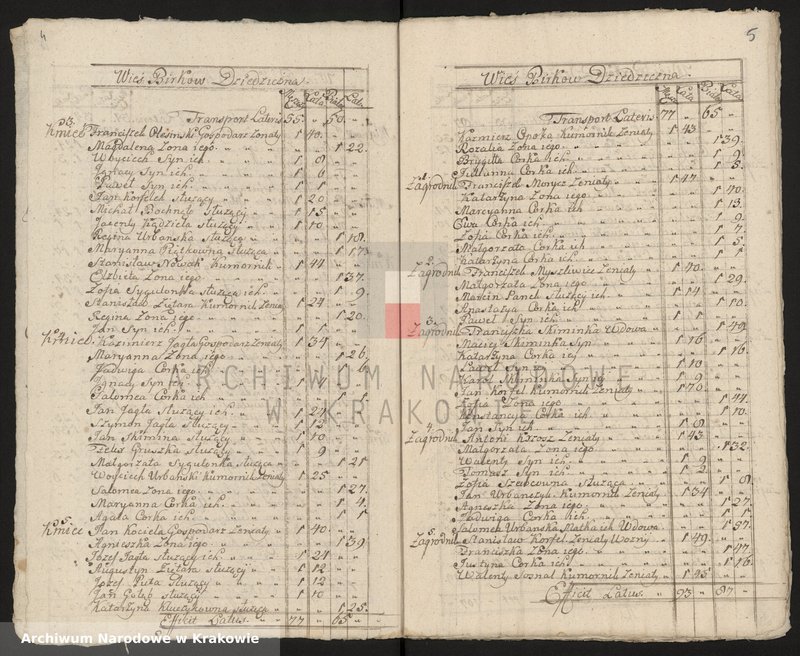 4
Wieś Birkow Dziedziczna.
Męsc. Lata Białe. Lata
Transport Lateris 55. 50.
3. Kmieć Franciszek Olesinski Gospodarz Zonaty 1 40.
Magdalena Zona iego 1 22.
Woyciech Syn ich 1 8
Ignacy Syn ich 1 6
Paweł Syn ich 1 1
Jan Korfelek Służący 1 20
Michał Bochnek Służący 1 15
Wincenty Kądziela Służący 1 10
Regina Urbanska Służąca 1 18.
Maryanna Piątkowna Służąca 1 13
Stanisław Nowak Kumornik 1 44
Elżbieta Zona iego 1 37.
Zofia Sygulonka służąca ich 1 9.
Stanisław Zietara Kumornik Zonia 1 24
Regina Zona iego 1 20.
Jan Syn ich 1 1
4. Kmieć Kazimierz Jagła Gospodarz Zonaty 1 34
Maryanna Zona iego 1 26
Jadwiga Corka ich 1 6
Ignacy Syn ich 1 4
Salomea Corka ich 1 1
Jan Jagła Służący ich 1 24
Szymon Jagła służący 1 12
Jan Skimina Służący 1 10
Felix Gruszka służący 1 9
Małgorzata Sygulonka służąca 1 21
Woyciech Urbański Kumornik Zonaty 1 25
Salomea Zona iego 1 27.
Maryanna Corka ich 1 4.
Agata Corka ich 1 1
5. Kmieć Jan Kociela Gospodarz Zeniaty 1 40.
Agnieszka Zona iego 1 39.
Jozef Jagła Służący ich 1 24
Augustyn Zietara służący 1 12
Jozef Puta Służący 1 12
Jan Gołąb służący 1 10
Katarzyna Kluczykowna służąca 1 25.
Efficit Latus. 77 65
5
Wieś Birkow Dziedziczna.
Męsc. Lata Białe Lata
Transport Lateris 77 65
Kazmierz Opoka Kumornik Zeniaty 1 43
Rozalia Zona iego 1 39.
Brygitta Corka ich 1 9.
Julianna Corka ich 1 5.
1. Zagrodnik Franciszek Moryc Zeniaty 1 47
Katarzyna Zona iego 1 40.
Marcyanna Corka ich 1 13.
Ewa Corka ich 1 9
Zofia Corka ich 1 7.
Małgorzata Corka ich 1 5
Katarzyna Corka ich 1 1
2. Zagrodnik Franciszek Myszliwiec Zeniaty 1 40.
Małgorzata Zona iego 1 29.
Marcin Panek Służący ich 1 14
Anastazya Corka ich 1 10.
Paweł Syn ich 1 1
3. Zagrodnik Franciszka Skiminka Wdowa 1 49
Maciey Skiminka Syn 1 16
Katarzyna Corka iey 1 16
Paweł Syn iey 1 10
Karol Skiminka Syn iey 1 9
Jan Korfel Kumornik Zeniaty 1 70
Zofia Zona iego 1 44.
Konstancya Corka ich 1 10.
Jan Syn ich 1 8
4. Zagrodnik Antoni Zeniaty 1 43
Małgorzata Zona iego 1 32
Walenty Syn ich 1 9
Tomasz Syn ich 1 2
Zofia Szewcowna Służąca 1 8
Jan Urbanczyk Kumornik Zeniaty 1 34
Agnieszka Zona iego 1 27.
Jadwiga Corka ich 1 1
Salomea Urbanska Matka ich Wdowa 1 57.
5. Zagrodnik Stanisław Korfel Zeniaty Wozny 1 49.
Franciszka Zona iego 1 47
Justyna Corka ich 1 16.
Walenty Sosnal Kumornik Zeniaty 1 45
Efficit Latus. 93 87
ARCHIWUM NARODOWE
W KRAKOWIE
Archiwum Narodowe w Krakowie